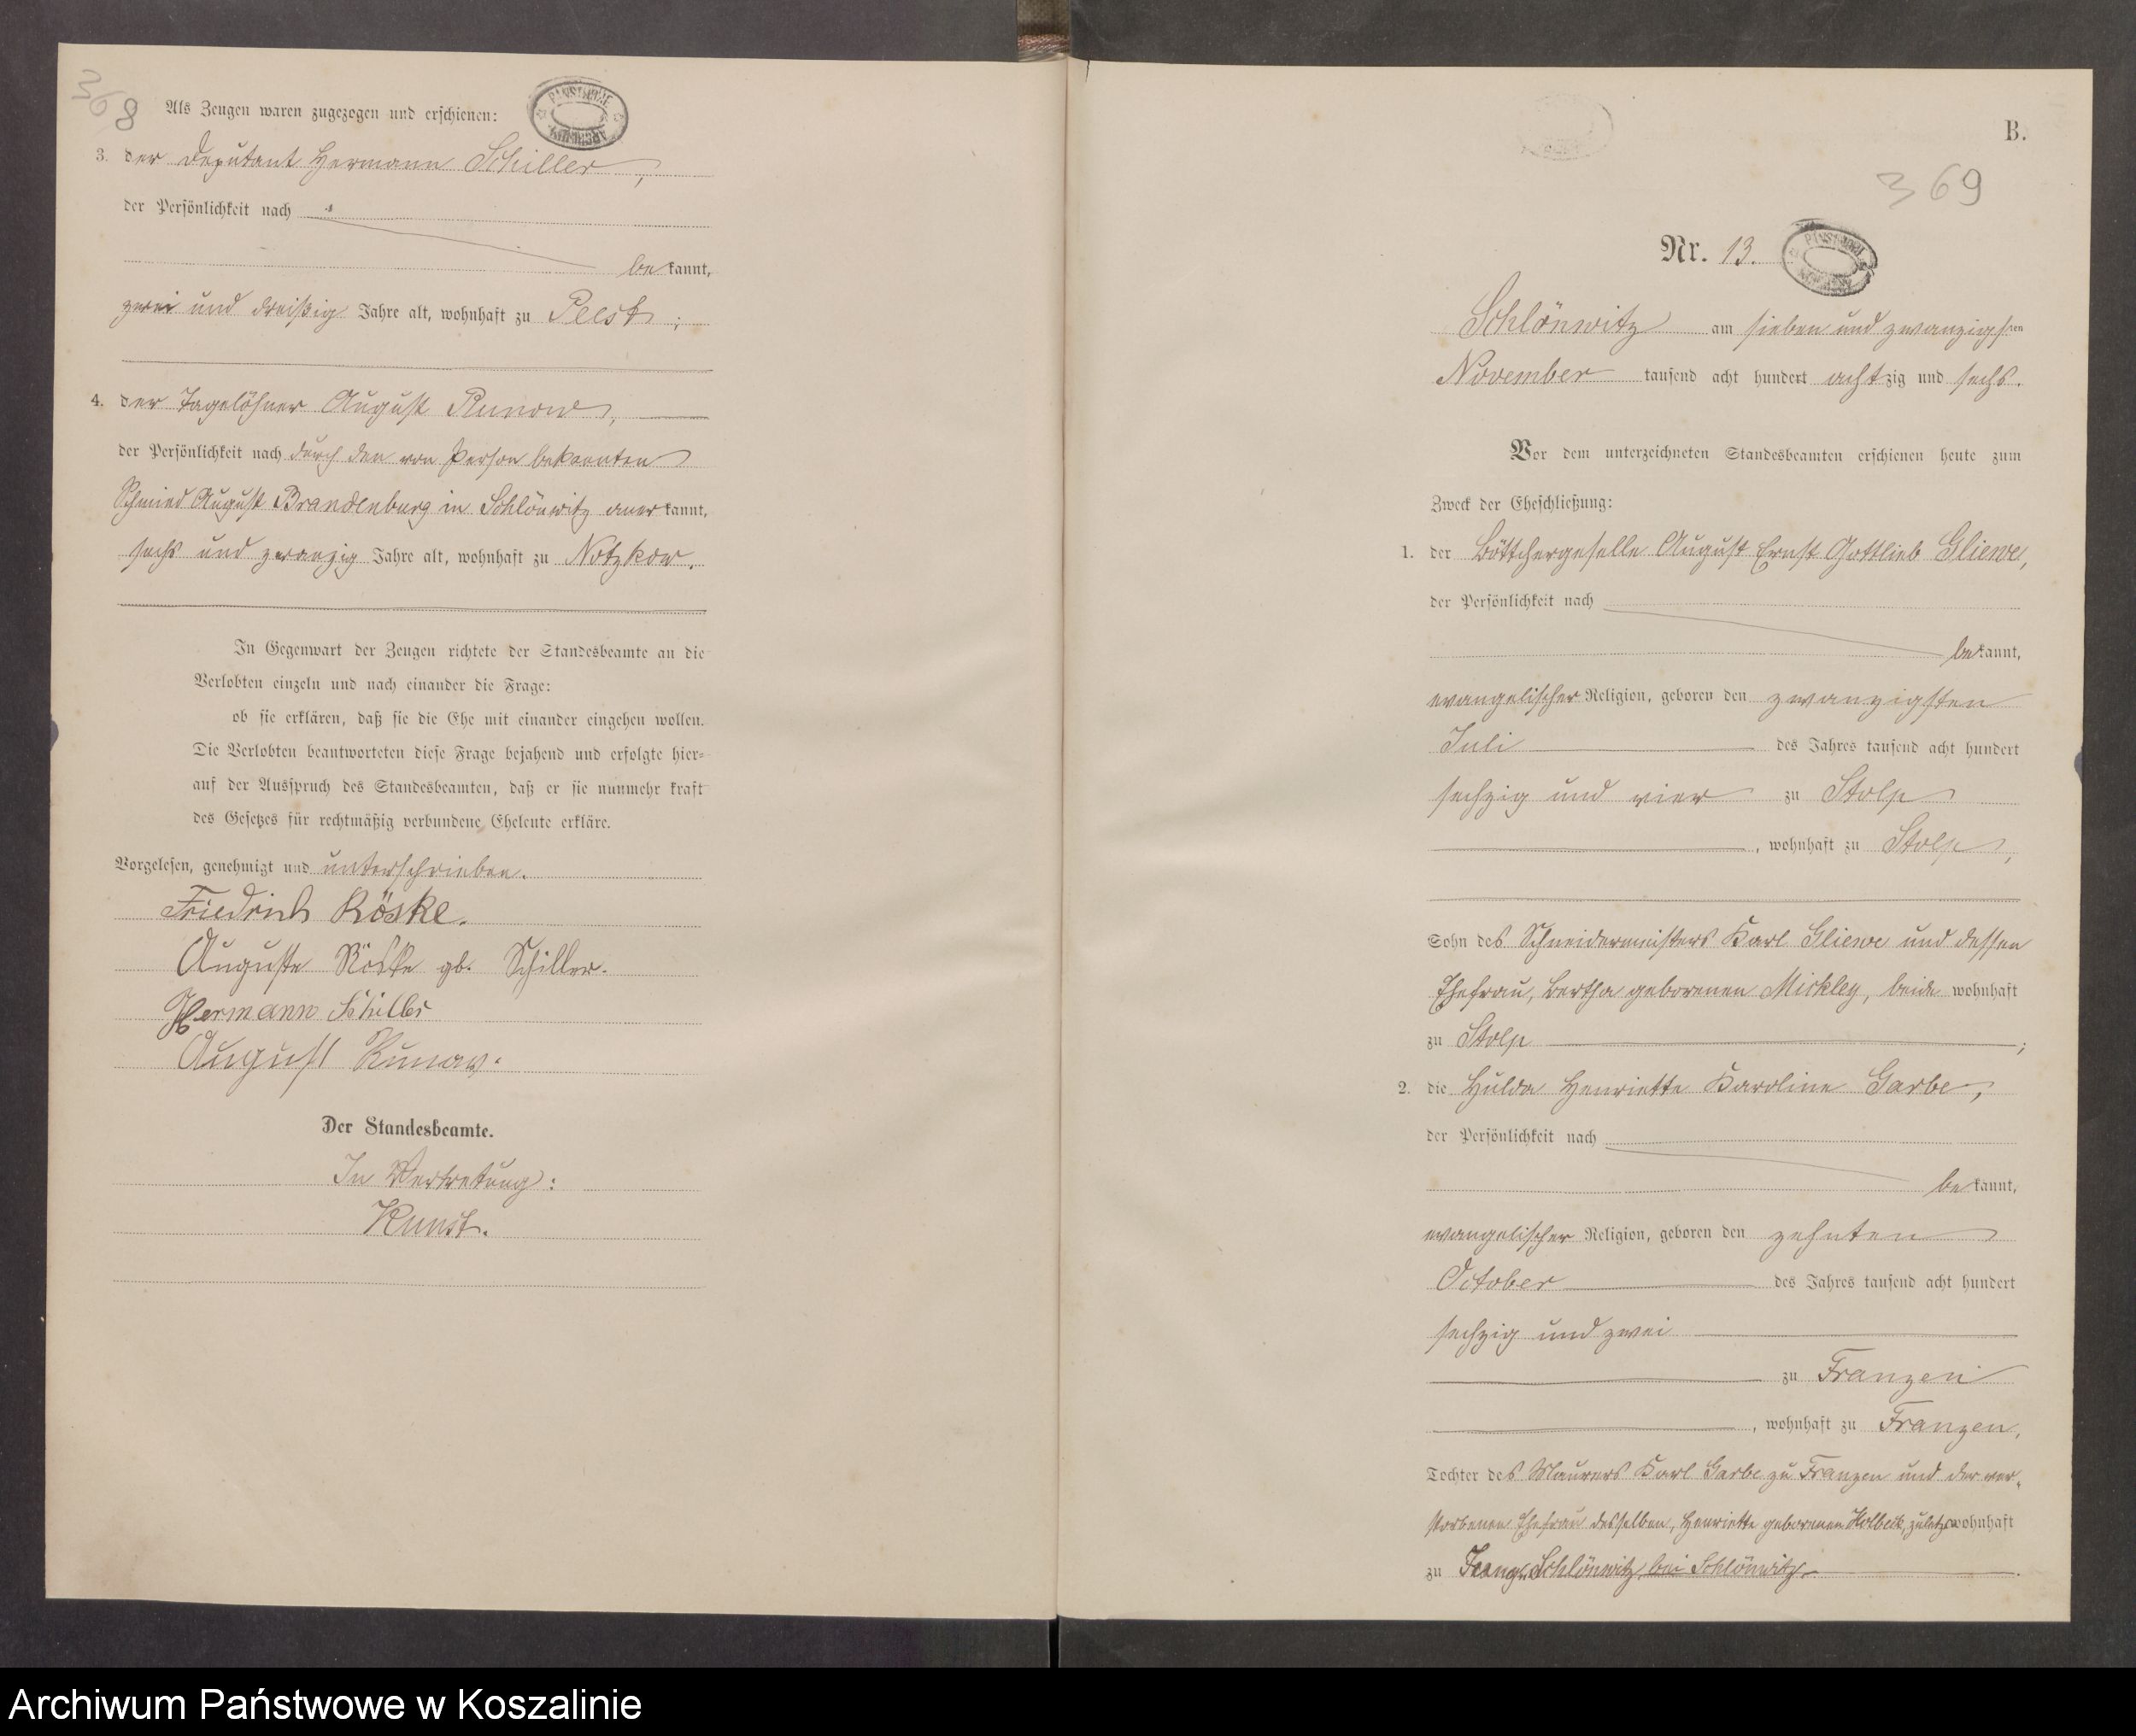 368
Als Zeugen waren zugezogen und erschienen:
3. der Deputant Hermann Schiller,
der Persönlichkeit nach
bekannt,
zwei und dreißig Jahre alt, wohnhaft zu Peest;
4. der Tagelöhner August Runow,
der Persönlichkeit nach durch den von Person bekannten
Schmied August Brandenburg in Schlönwitz anerkannt,
sechs und zwanzig Jahre alt, wohnhaft zu Notzkow.
In Gegenwart der Zeugen richtete der Standesbeamte an die
Verlobten einzeln und nach einander die Frage:
ob sie erklären, daß sie die Ehe mit einander eingehen wollen.
Die Verlobten beantworteten diese Frage bejahend und erfolgte hier-
auf der Ausspruch des Standesbeamten, daß er sie nunmehr kraft
des Gesetzes für rechtmäßig verbundene Eheleute erkläre.
Vorgelesen, genehmigt und unterschrieben.
Friedrich Röske.
Auguste Röske gb. Schiller.
Hermann Schiller
August Runow.
Der Standesbeamte.
In Vertretung:
Kunst.
B.
369
Nr. 13.
Schlönwitz am sieben und zwanzigsten
November tausend acht hundert achtzig und sechs.
Vor dem unterzeichneten Standesbeamten erschienen heute zum
Zweck der Eheschließung:
1. der Böttchergeselle August Ernst Gottlieb Gliewe,
der Persönlichkeit nach
bekannt,
evangelischer Religion, geboren den zwanzigsten
Juli des Jahres tausend acht hundert
sechzig und vier zu Stolp
, wohnhaft zu Stolp,
Sohn des Schneidermeisters Karl Gliewe und dessen
Ehefrau, Bertha geborenen Mickley, beide wohnhaft
zu Stolp ;
2. die Hulda Henriette Karoline Garbe,
der Persönlichkeit nach
bekannt,
evangelischer Religion, geboren den zehnten
October des Jahres tausend acht hundert
sechzig und zwei
zu Franzen
, wohnhaft zu Franzen,
Tochter des Maurers Karl Garbe zu Franzen und der ver-
storbenen Ehefrau desselben, Henriette geborenen Holbeck, zuletzt wohnhaft
zu Schlönwitz bei Schlönwitz.
Archiwum Państwowe w Koszalinie